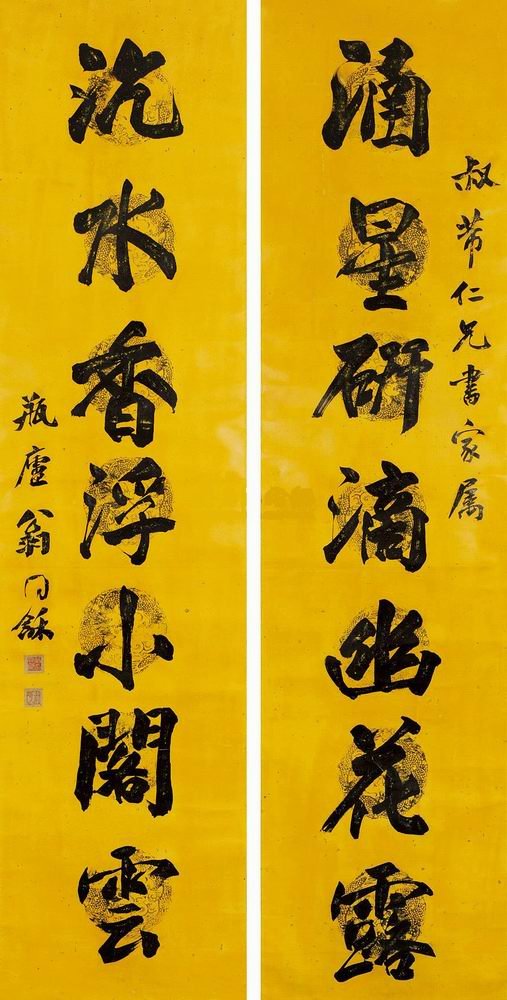 叔芾仁兄書家属
涵星研滴幽花露
沉水香浮小閣雲
瓶廬翁同龢